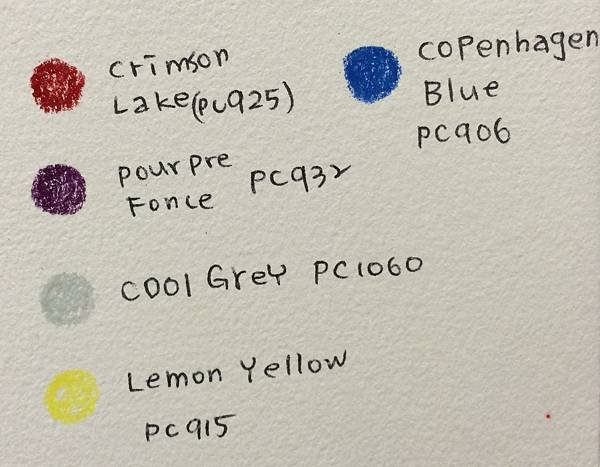 Crimson
Lake(PC925)
Copenhagen
Blue
PC906
Pourpre
Fonce PC932
Cool Grey PC1060
Lemon Yellow
PC915